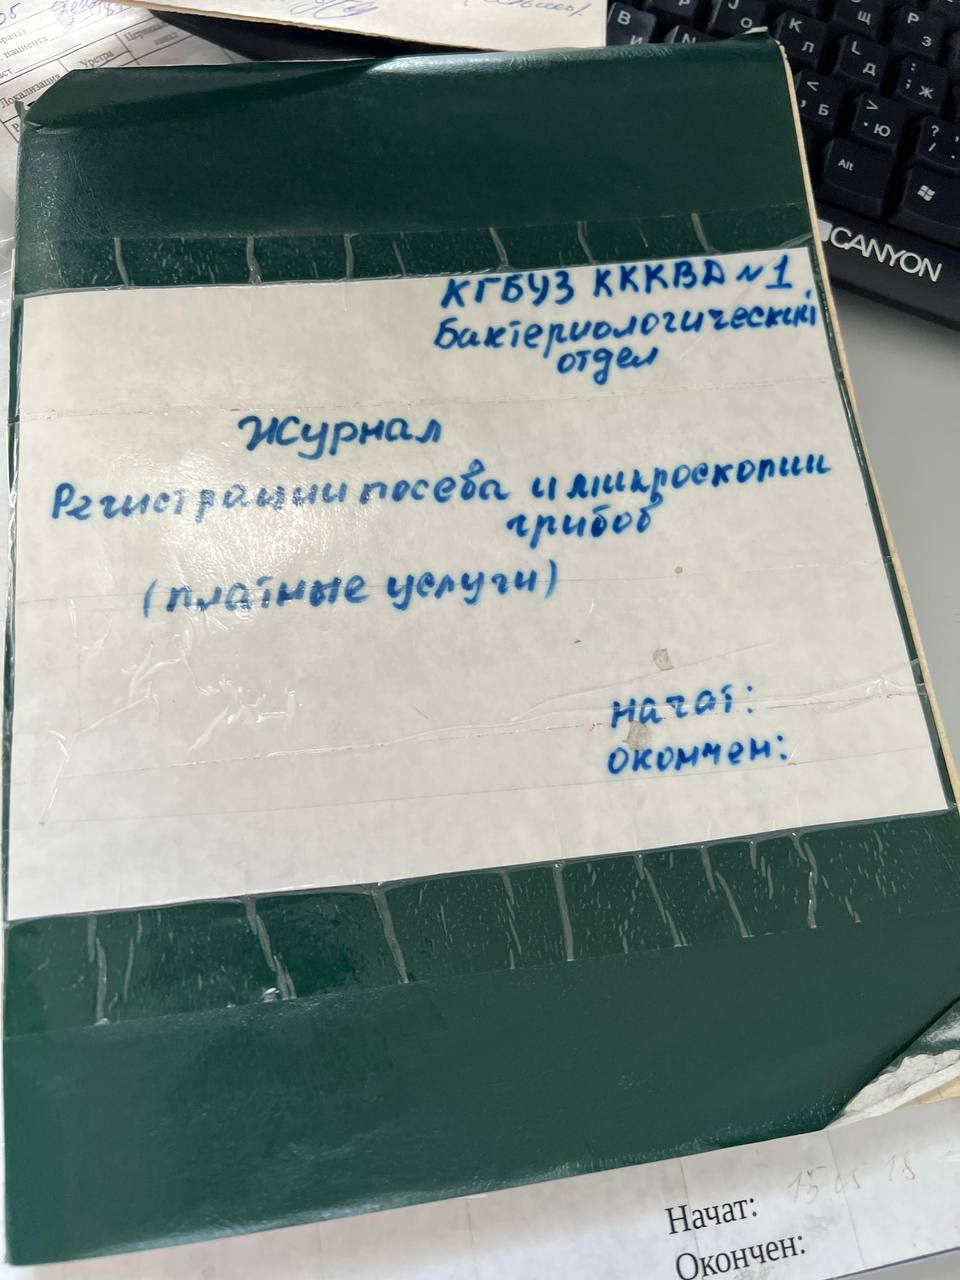 рача)
пациента
Локализация
Устра
КГБУЗ КККВД №1
Бактериологический
отдел
Журнал
Регистрации посева и микроскопии
грибов
(платные услуги)
начат:
окончен:
Начат: 15 05 18
Окончен:
CANYON
Alt